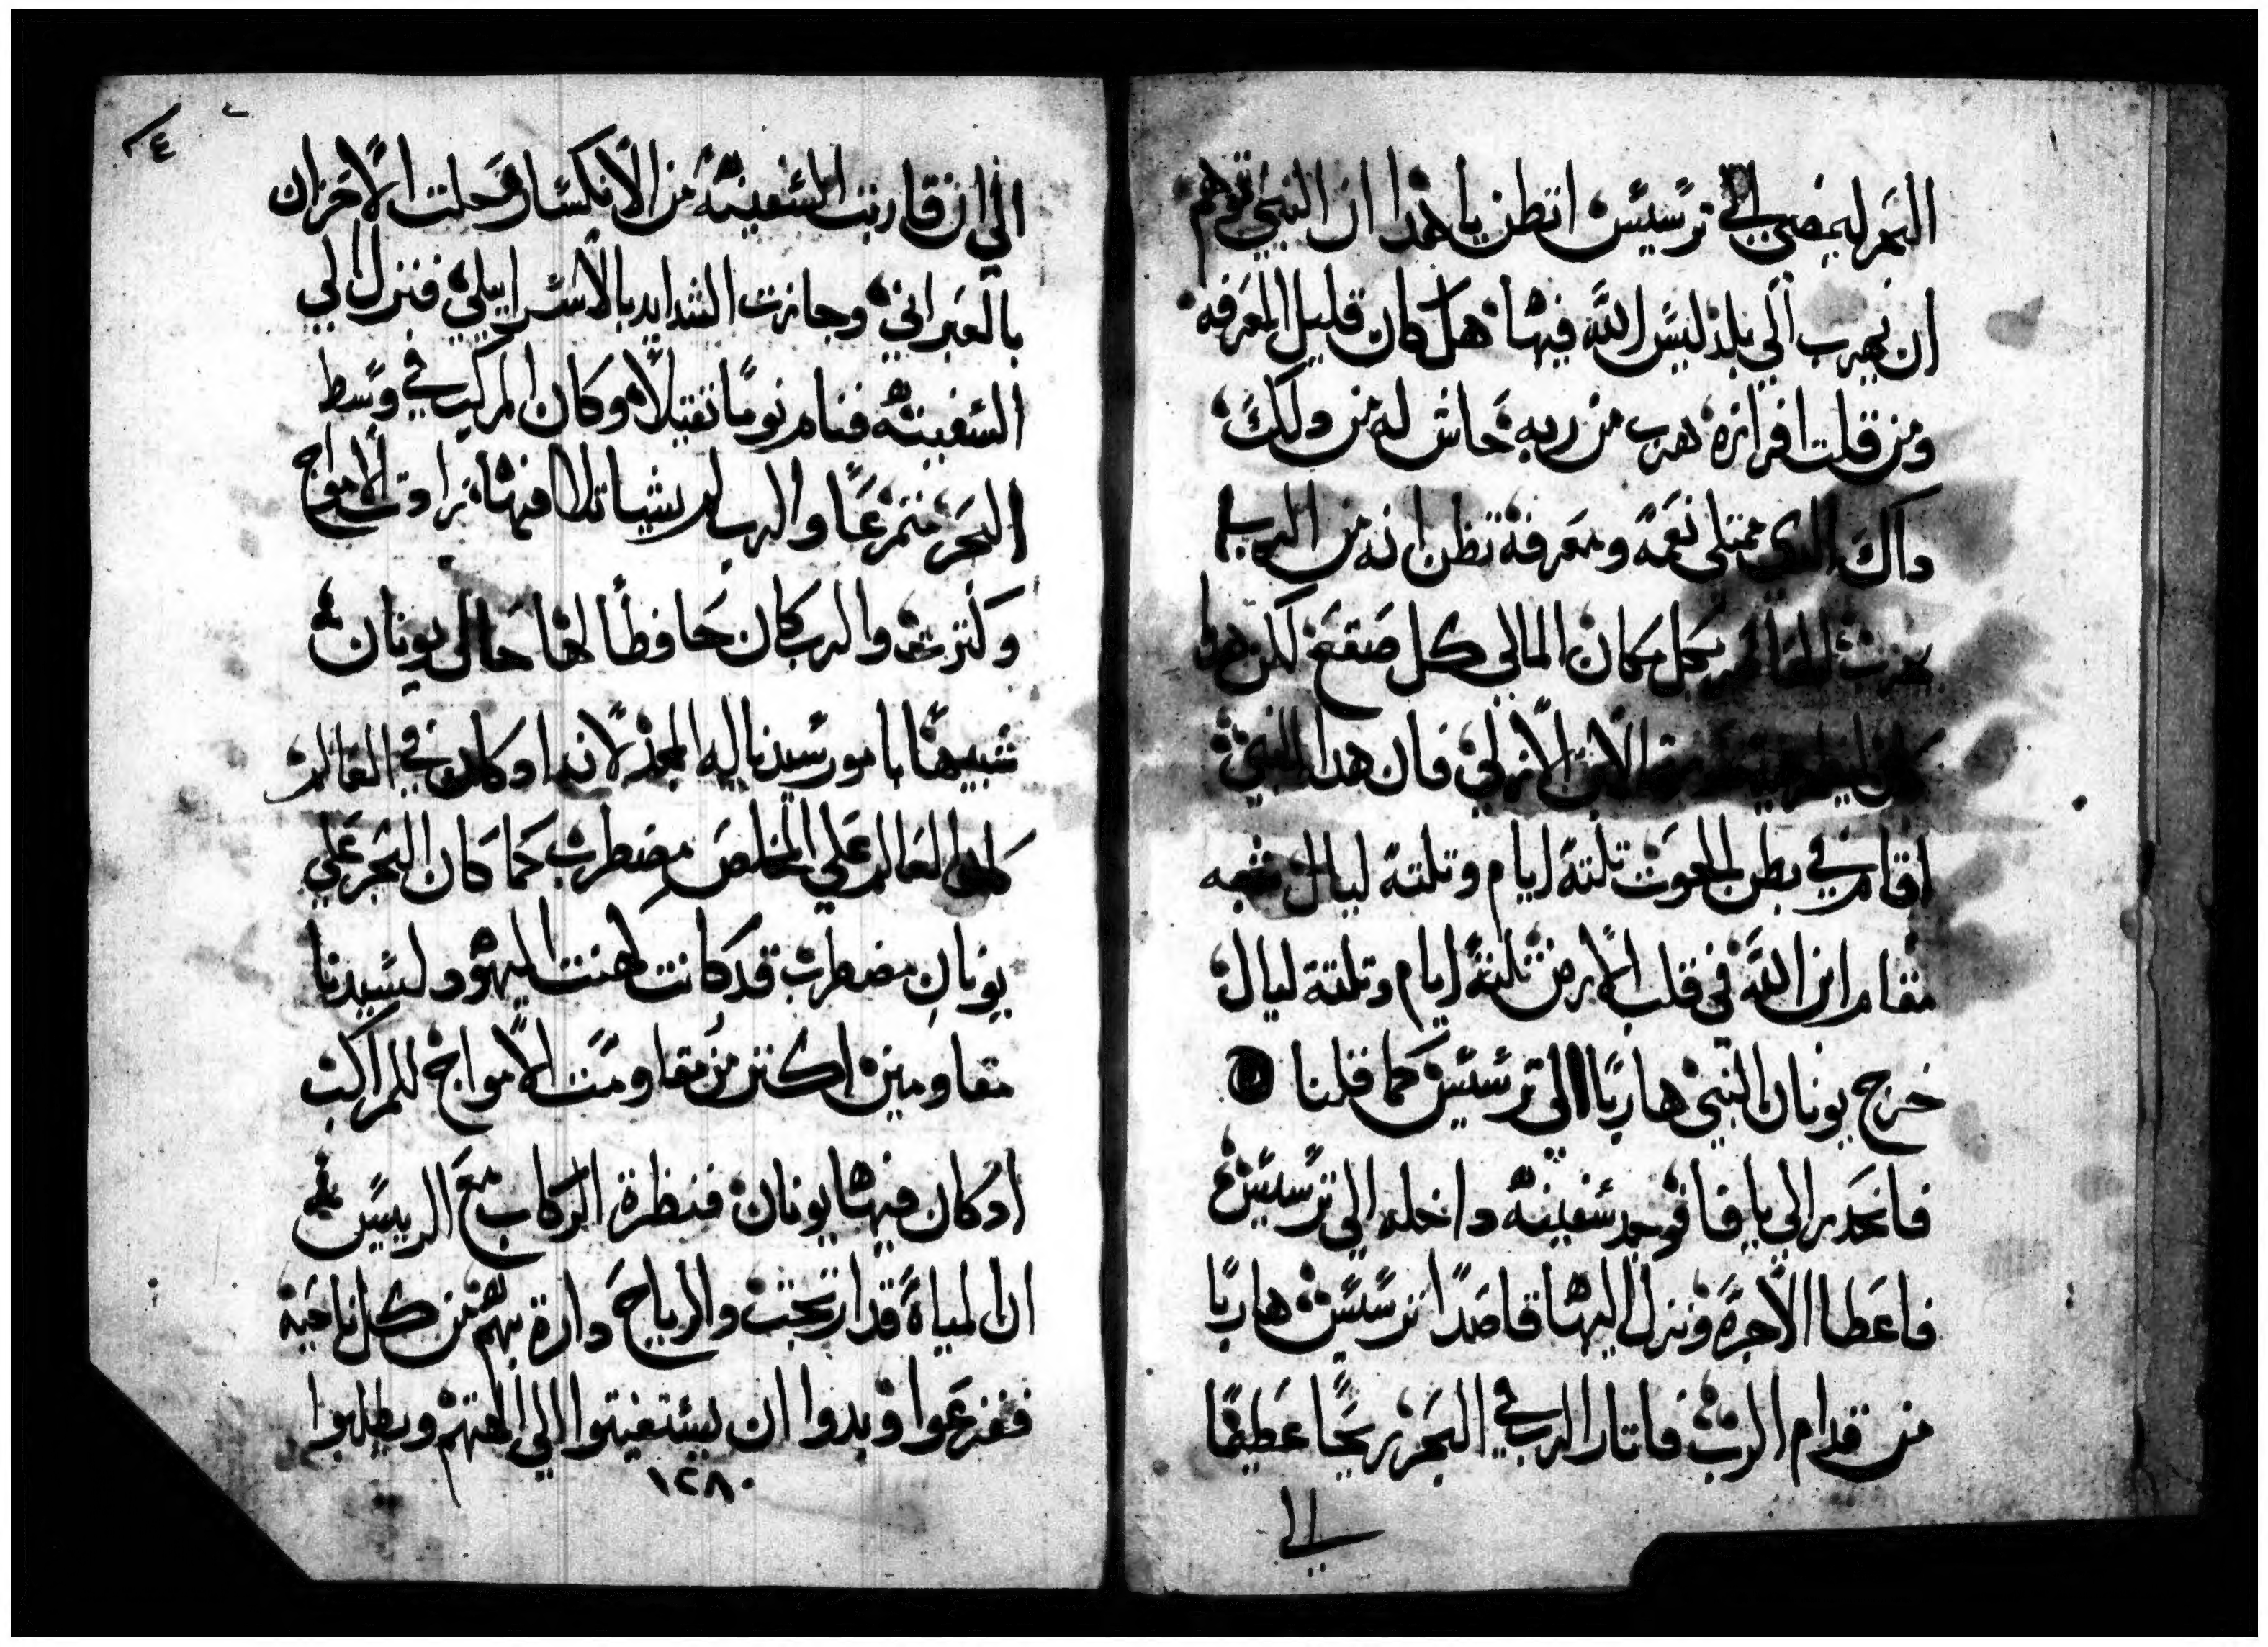 البحر ليمضي الي ترسيس اتظن يا هدا ان النبي توهم
ان يهرب الي بلد ليس الله فيها هل كان قليل المعرفه
ومن قلت افرازه هرب من ربه حاش له من دلك
داك الدي ممتلي نعمه ومعرفة تظن انه من الرب
يهرب بكل مكان المالي كل صقع لكن هدا
الابن الازلي فان هدا النبي
اقام في بطن الحوت تلتة ايام وتلتة ليال شبه
مقام ابن الله في قلب الارض تلتة ايام وتلتة ليال
خرج يونان النبي هاربا الي ترسيس كما قلنا
فانحدر الي يافا فوجد سفينه داخله الي ترسيس
فاعطا الاجرة ونزل اليها قاصدا ترسيس هاربا
من قدام الرب فاتار الرب في البحر ريحا عظيما
الي
٤
الي ان قاربت السفينه من الانكسار وحلت الاحزان
بالعبراني وجازت الشدايد بالاسراييلي فنزل الي
السفينه فنام نوما تقيلا وكان المركب في وسط
البحر متمزعا والرب لم يشيا تلافها تراوت الامواج
وكترته والرب كان حافظا لها حال يونان
شبيها بامور سيدنا ليه المجد لانه اد كان في العالم
كان العالم علي المخلص مضطرب كما كان البحر علي
يونان مضطرب قد كانت كهنت اليهود لسيدنا
مقاومين اكتر من مقاومت الامواج للمراكب
ادكان فيها يونان فنظرة الركاب مع الرييس
ان المياة قد ارتجت والرياح دارة بهم من كل ناحية
ففزعوا وبدوا ان يستغيتوا الي الهتهم ويطلبوا
١٢٨٠